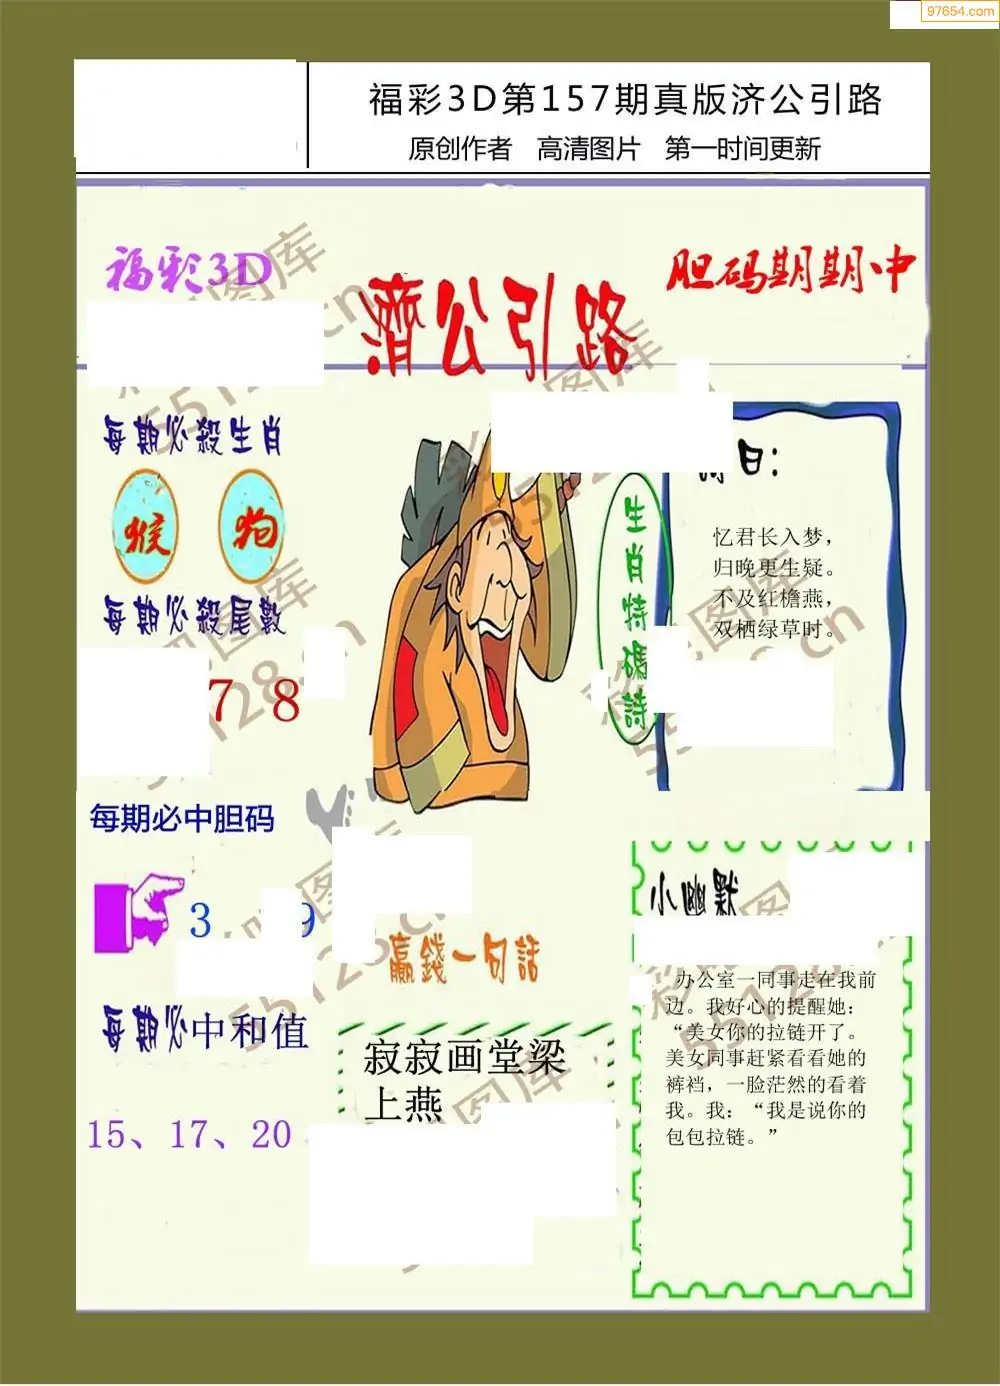 97654.com
福彩3D第157期真版济公引路
原创作者 高清图片 第一时间更新
福彩3D
濟公引路
胆码期期中
每期必殺生肖
猴 狗
每期必殺尾數
7 8
每期必中胆码
3 9
每期必中和值
15、17、20
生肖特碼詩
曰：
忆君长入梦，
归晚更生疑。
不及红檐燕，
双栖绿草时。
贏錢一句話
寂寂画堂梁
上燕
小幽默
办公室一同事走在我前
边。我好心的提醒她：
“美女你的拉链开了。
美女同事赶紧看看她的
裤裆，一脸茫然的看着
我。我：“我是说你的
包包拉链。”